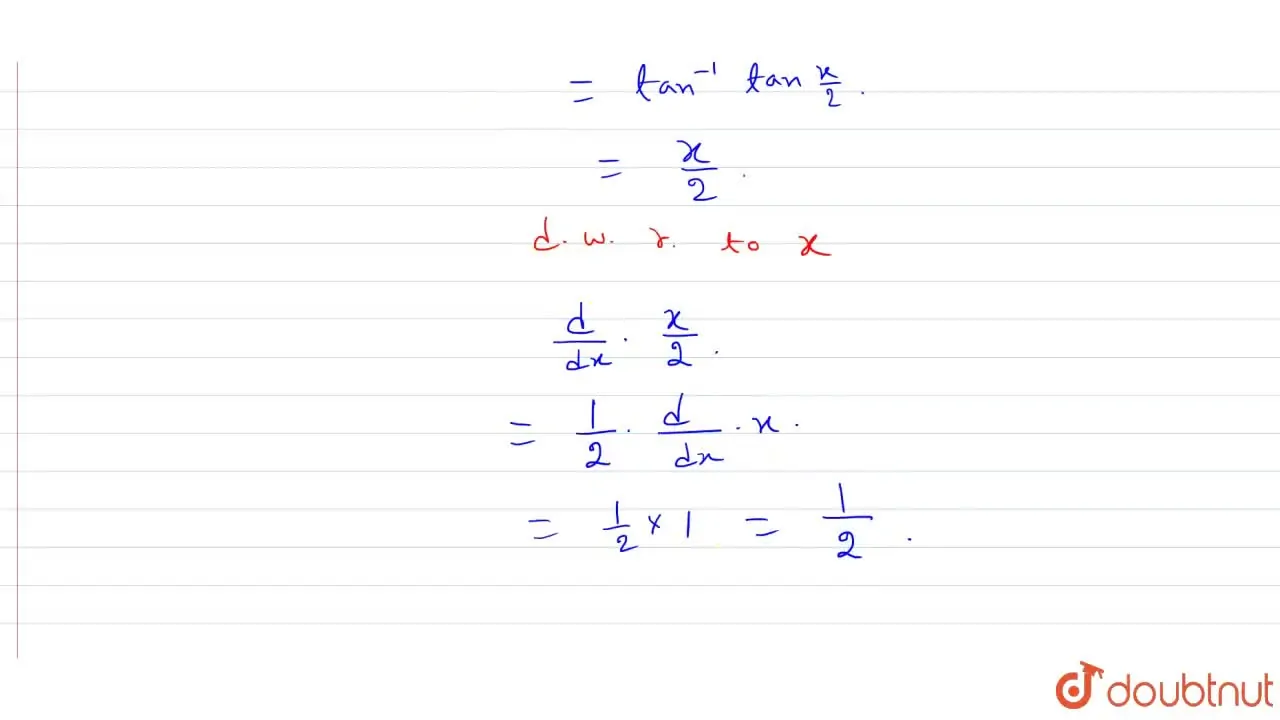 = tan⁻¹ tan x/2.
= x/2.
d. w. r. to x
d/dx . x/2.
= 1/2 . d/dx . x.
= 1/2 × 1 = 1/2.
doubtnut